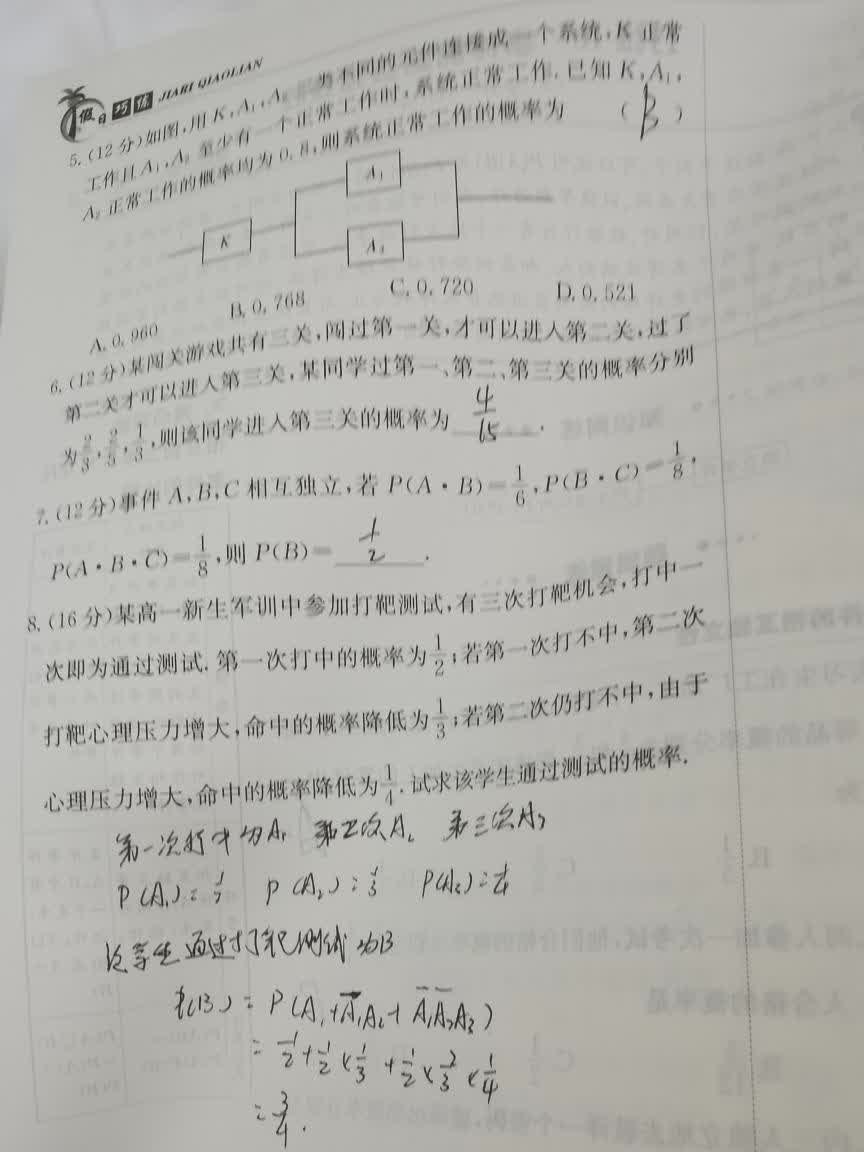 假日巧练 JIARI QIAOLIAN
5.(12分)如图,用K,A₁,A₂三类不同的元件连接成一个系统,K正常
工作且A₁,A₂至少有一个正常工作时,系统正常工作.已知K,A₁,
A₂正常工作的概率均为0.8,则系统正常工作的概率为 ( B )
A₁
K
A₂
A.0.960 B.0.768 C.0.720 D.0.521
6.(12分)某闯关游戏共有三关,闯过第一关,才可以进入第二关,过了
第二关才可以进入第三关,某同学过第一、第二、第三关的概率分别
为2/3,2/5,1/3,则该同学进入第三关的概率为 4/15 .
7.(12分)事件A,B,C相互独立,若P(A·B)=1/6,P(B·C)=1/8,
P(A·B·C)=1/8,则P(B)= 1/2 .
8.(16分)某高一新生军训中参加打靶测试,有三次打靶机会,打中一
次即为通过测试.第一次打中的概率为1/2;若第一次打不中,第二次
打靶心理压力增大,命中的概率降低为1/3;若第二次仍打不中,由于
心理压力增大,命中的概率降低为1/4.试求该学生通过测试的概率.
第一次打中为A₁ 第二次A₂ 第三次A₃
P(A₁)=1/2 P(A₂)=1/3 P(A₃)=1/4
该学生通过打靶测试为B
P(B)=P(A₁+A̅₁A₂+A̅₁A̅₂A₃)
=1/2+1/2×1/3+1/2×2/3×1/4
=3/4.